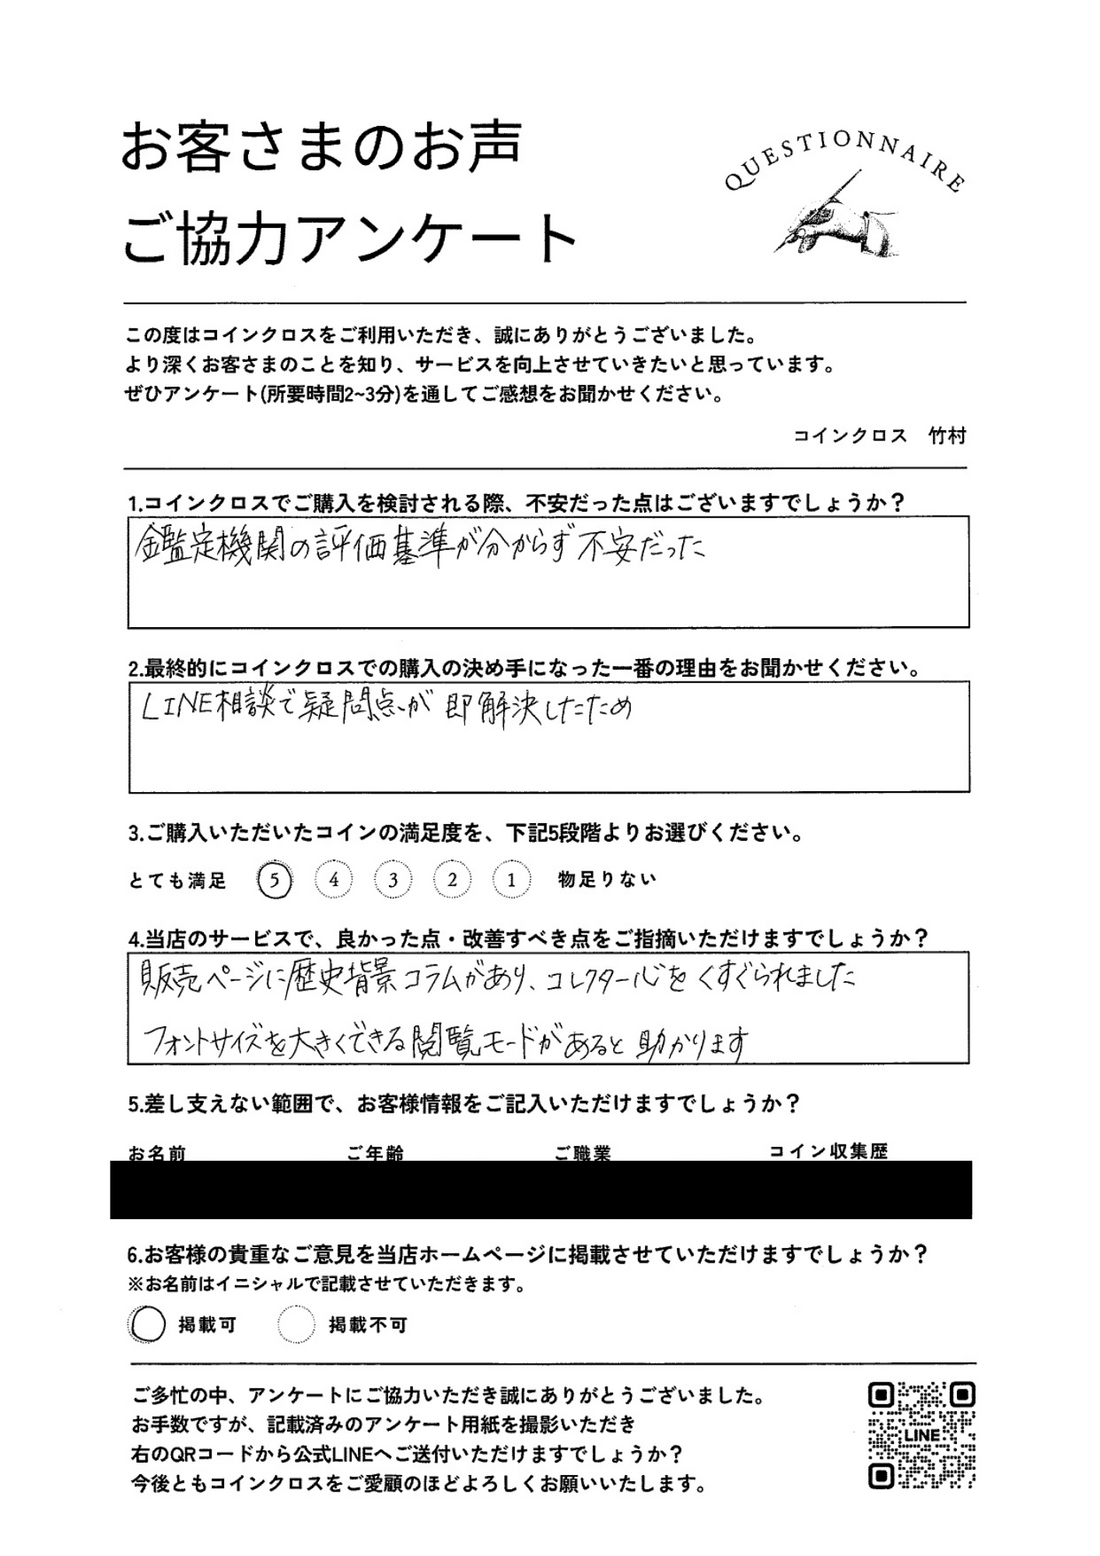 お客さまのお声
ご協力アンケート
QUESTIONNAIRE
この度はコインクロスをご利用いただき、誠にありがとうございました。
より深くお客さまのことを知り、サービスを向上させていきたいと思っています。
ぜひアンケート(所要時間2~3分)を通してご感想をお聞かせください。
コインクロス 竹村
1.コインクロスでご購入を検討される際、不安だった点はございますでしょうか？
鑑定機関の評価基準が分からず不安だった
2.最終的にコインクロスでの購入の決め手になった一番の理由をお聞かせください。
LINE相談で疑問点が即解決したため
3.ご購入いただいたコインの満足度を、下記5段階よりお選びください。
とても満足 5 4 3 2 1 物足りない
4.当店のサービスで、良かった点・改善すべき点をご指摘いただけますでしょうか？
販売ページに歴史背景コラムがあり、コレクター心をくすぐられました
フォントサイズを大きくできる閲覧モードがあると助かります
5.差し支えない範囲で、お客様情報をご記入いただけますでしょうか？
お名前 ご年齢 ご職業 コイン収集歴
6.お客様の貴重なご意見を当店ホームページに掲載させていただけますでしょうか？
※お名前はイニシャルで記載させていただきます。
掲載可 掲載不可
ご多忙の中、アンケートにご協力いただき誠にありがとうございました。
お手数ですが、記載済みのアンケート用紙を撮影いただき
右のQRコードから公式LINEへご送付いただけますでしょうか？
今後ともコインクロスをご愛顧のほどよろしくお願いいたします。
LINE